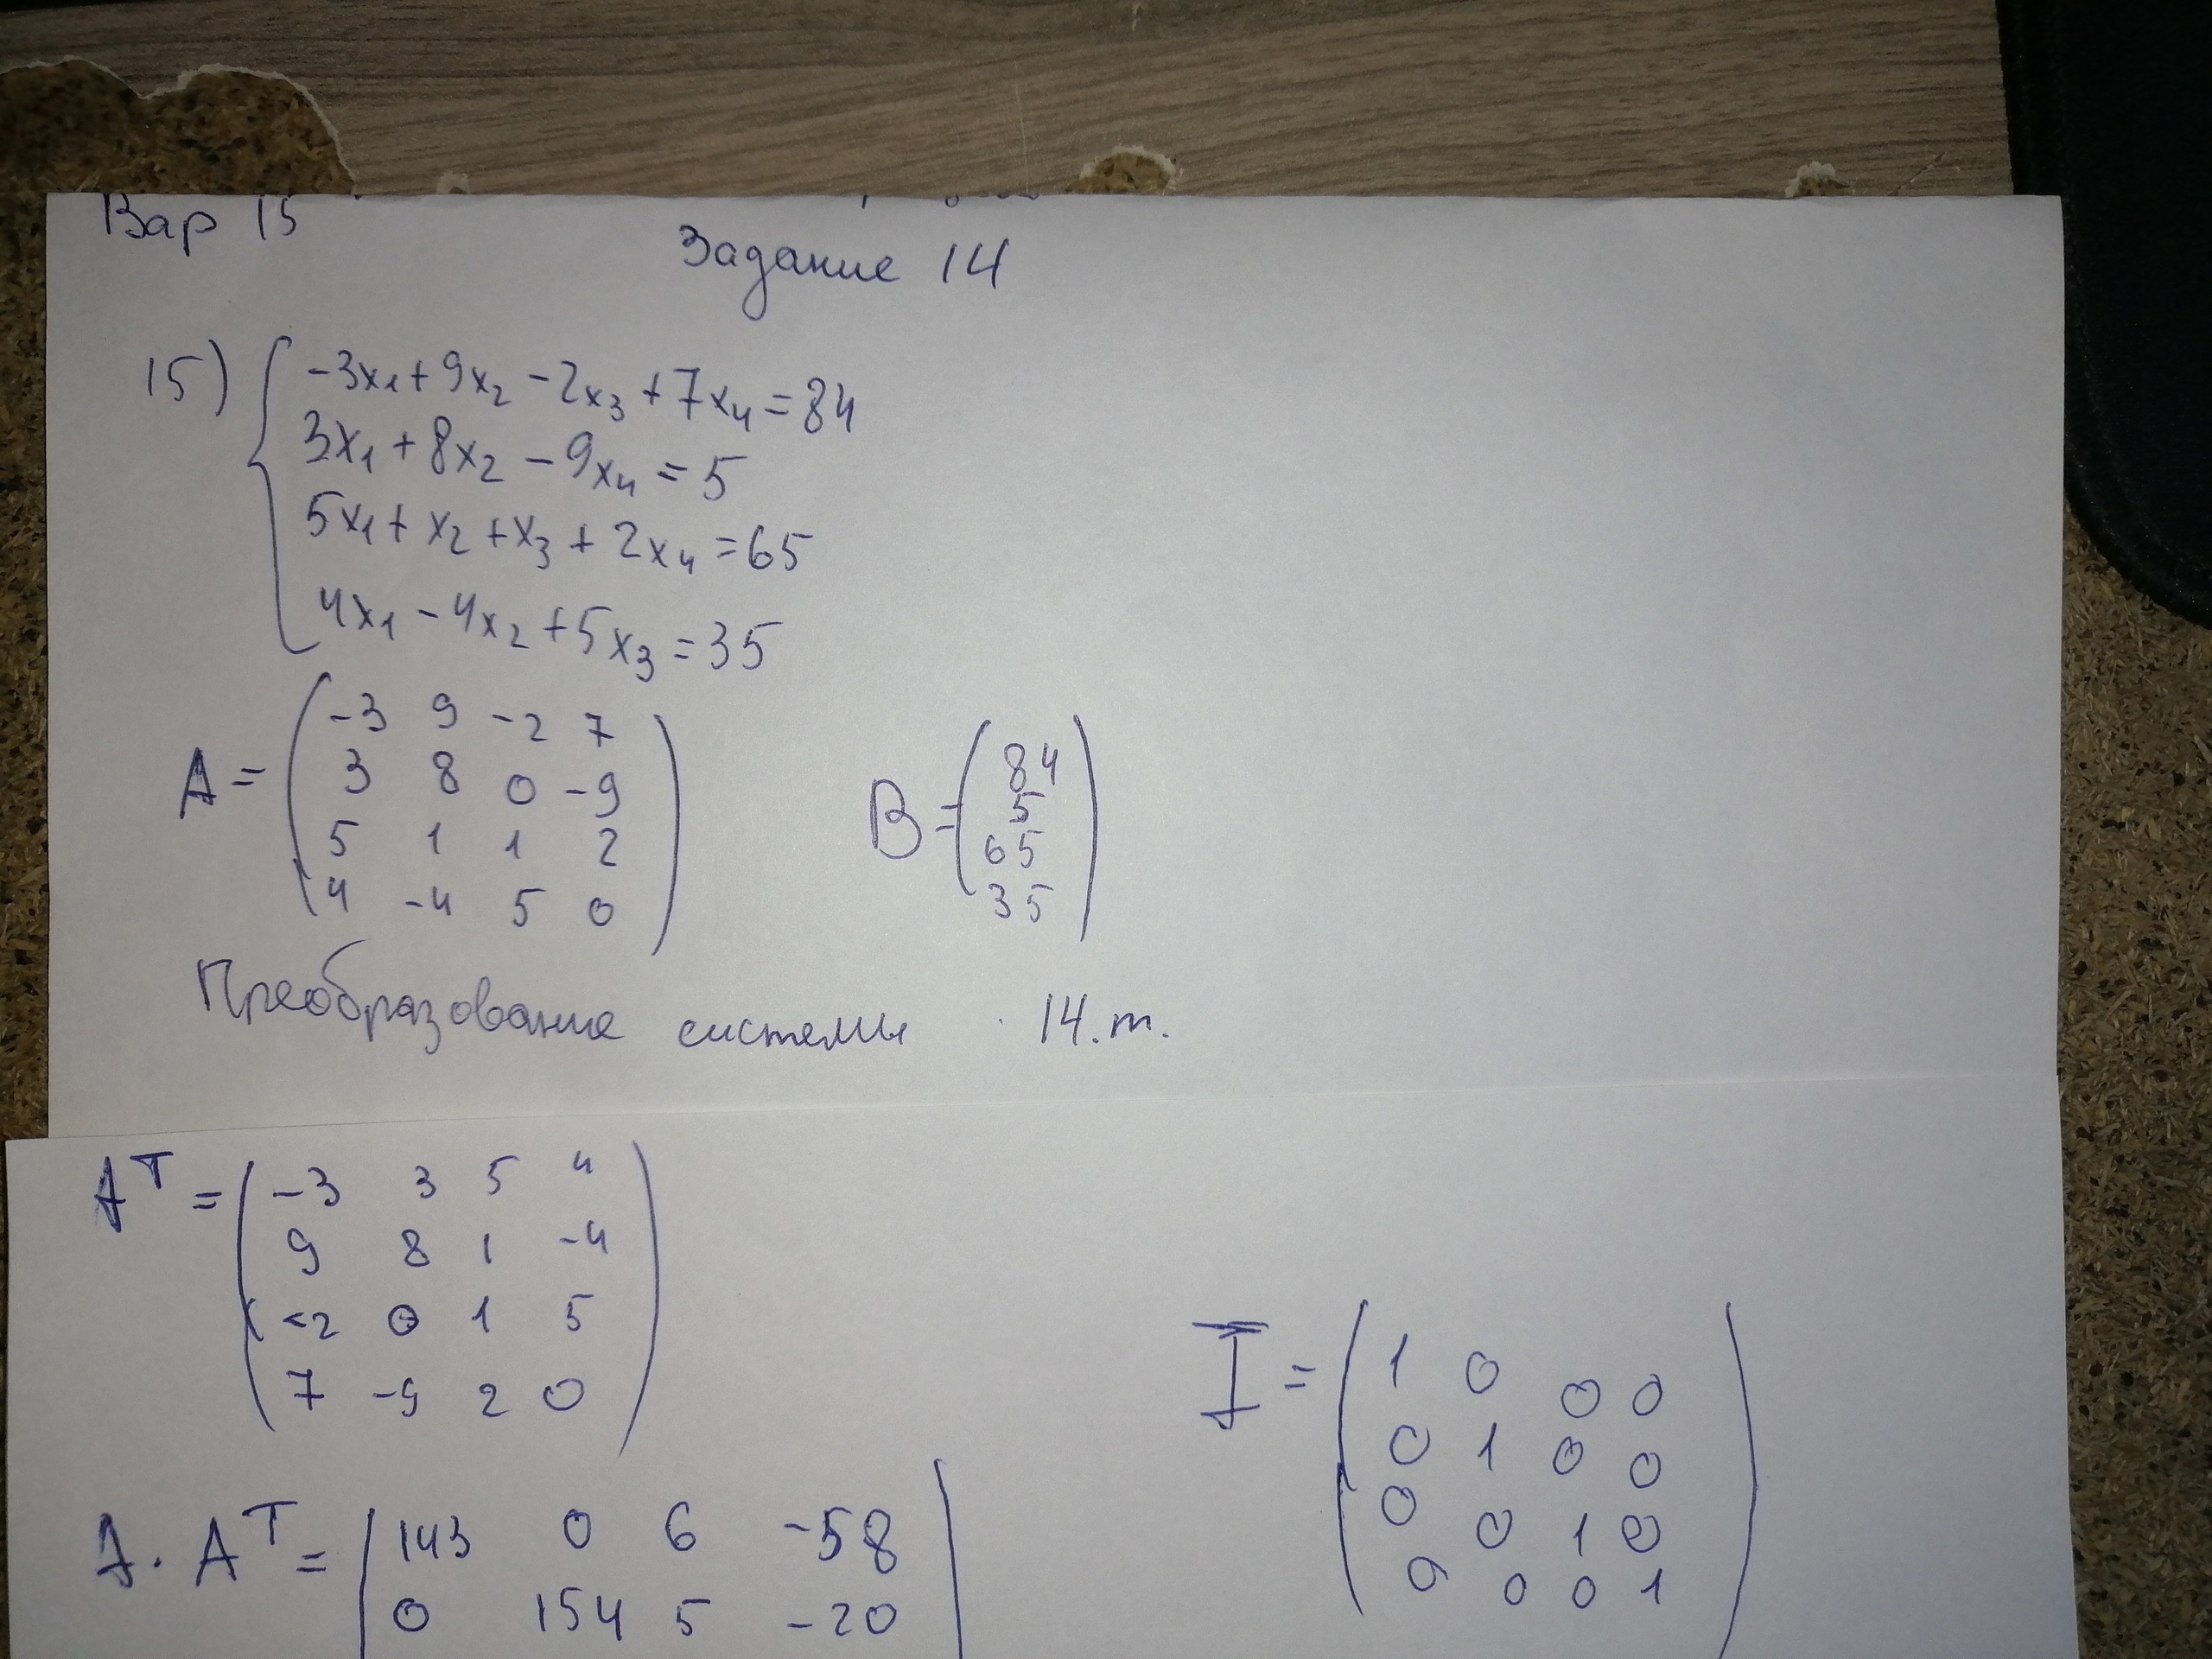 Вар 15
Задание 14
15) { -3x₁ + 9x₂ - 2x₃ + 7x₄ = 84
3x₁ + 8x₂ - 9x₄ = 5
5x₁ + x₂ + x₃ + 2x₄ = 65
4x₁ - 4x₂ + 5x₃ = 35
A = ( -3 9 -2 7
3 8 0 -9
5 1 1 2
4 -4 5 0 )
B = ( 84
5
65
35 )
Преобразование системы 14.m.
Aᵀ = ( -3 3 5 4
9 8 1 -4
-2 0 1 5
7 -9 2 0 )
I = ( 1 0 0 0
0 1 0 0
0 0 1 0
0 0 0 1 )
A · Aᵀ = | 143 0 6 -58 |
0 154 5 -20